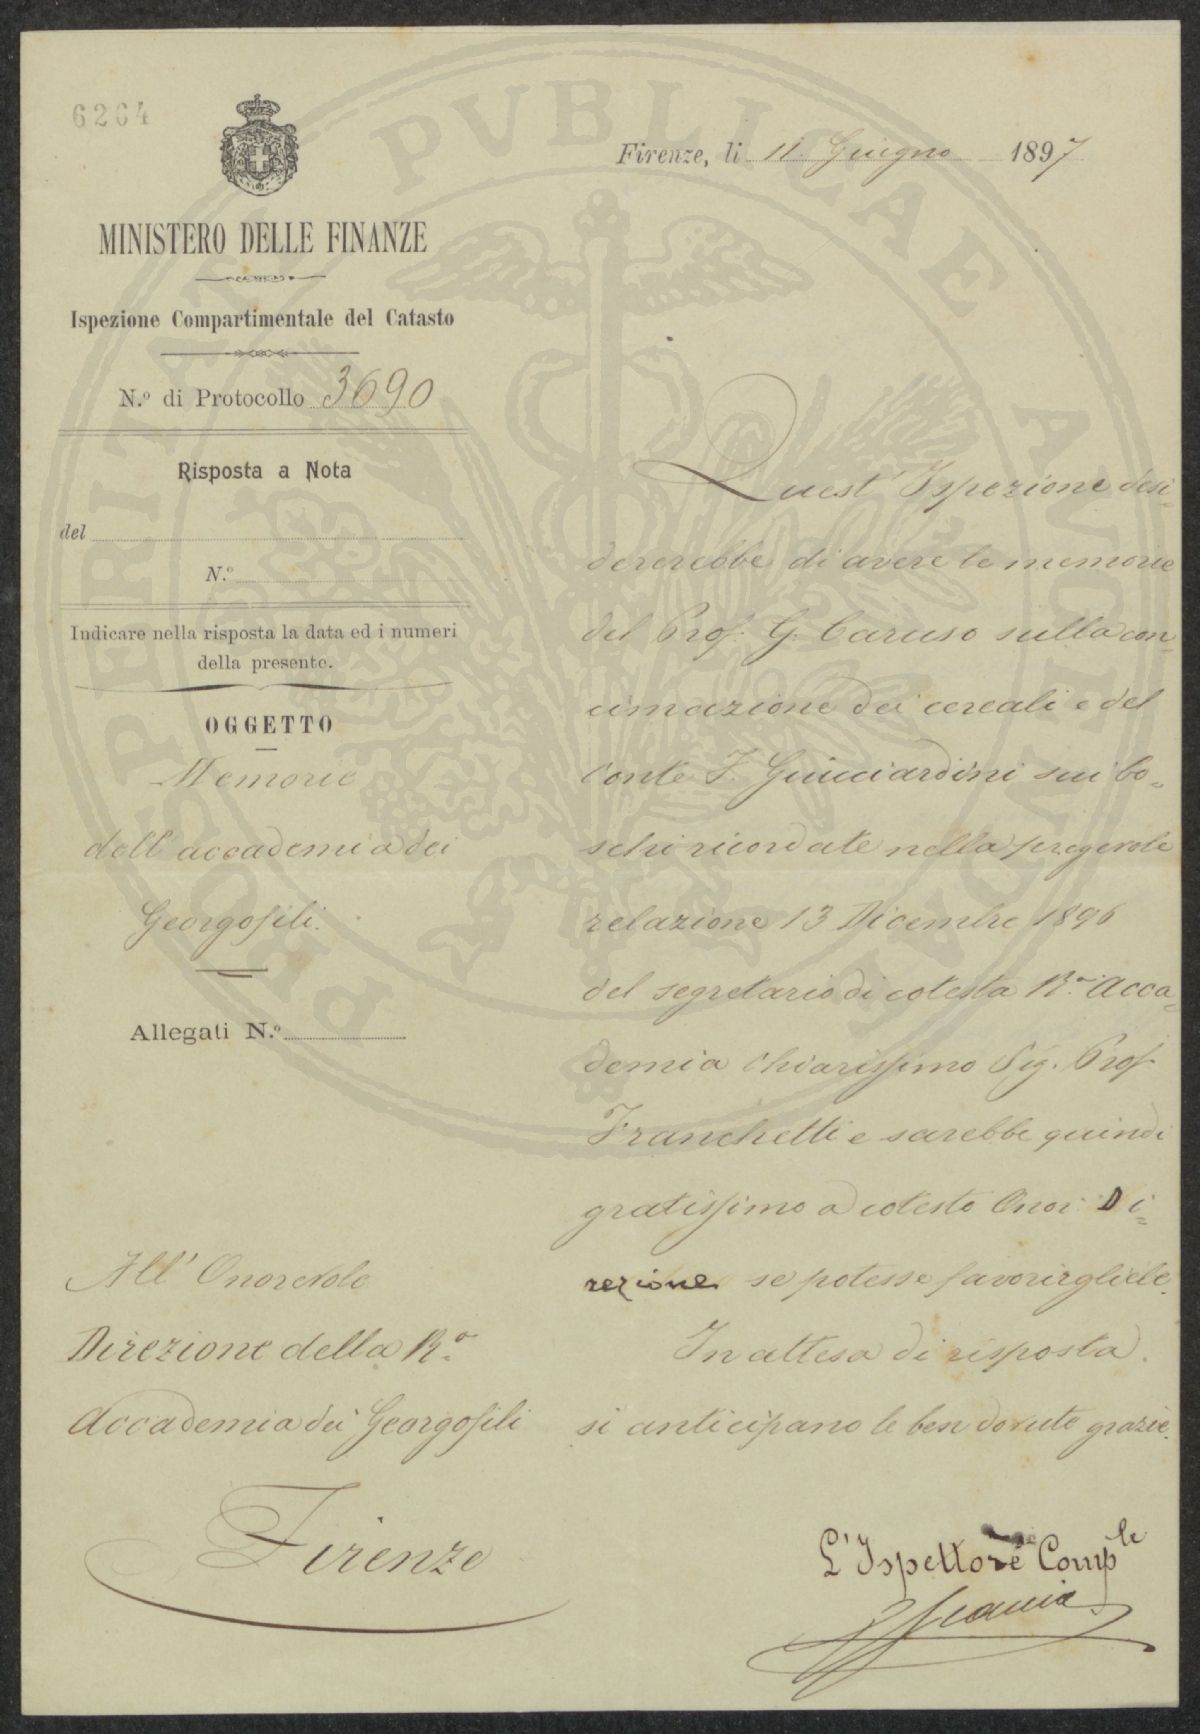 6264
Firenze, li 11. Giugno 1897
MINISTERO DELLE FINANZE
Ispezione Compartimentale del Catasto
N.º di Protocollo 3690
Risposta a Nota
del
N.º
Indicare nella risposta la data ed i numeri
della presente.
OGGETTO
Memorie
dell' accademia dei
Georgofili.
Allegati N.º
All' Onorevole
Direzione della R.ª
Accademia dei Georgofili
Firenze
Quest' Ispezione desi=
dererebbe di avere le memorie
del Prof. G. Caruso sulla con=
cimazione dei cereali e del
Conte F. Guicciardini sui bo=
schi ricordate nella pregevole
relazione 13 Dicembre 1896
del segretario di cotesta R.ª Acca=
demia Chiarissimo Sig. Prof
Franchetti e sarebbe quindi
gratissimo a cotesta Onor. Di=
rezione se potesse favorirgliele.
In attesa di risposta.
si anticipano le ben dovute grazie.
L'Ispettore Comp.le
PROSPERITATI PVBLICAE AVGENDAE